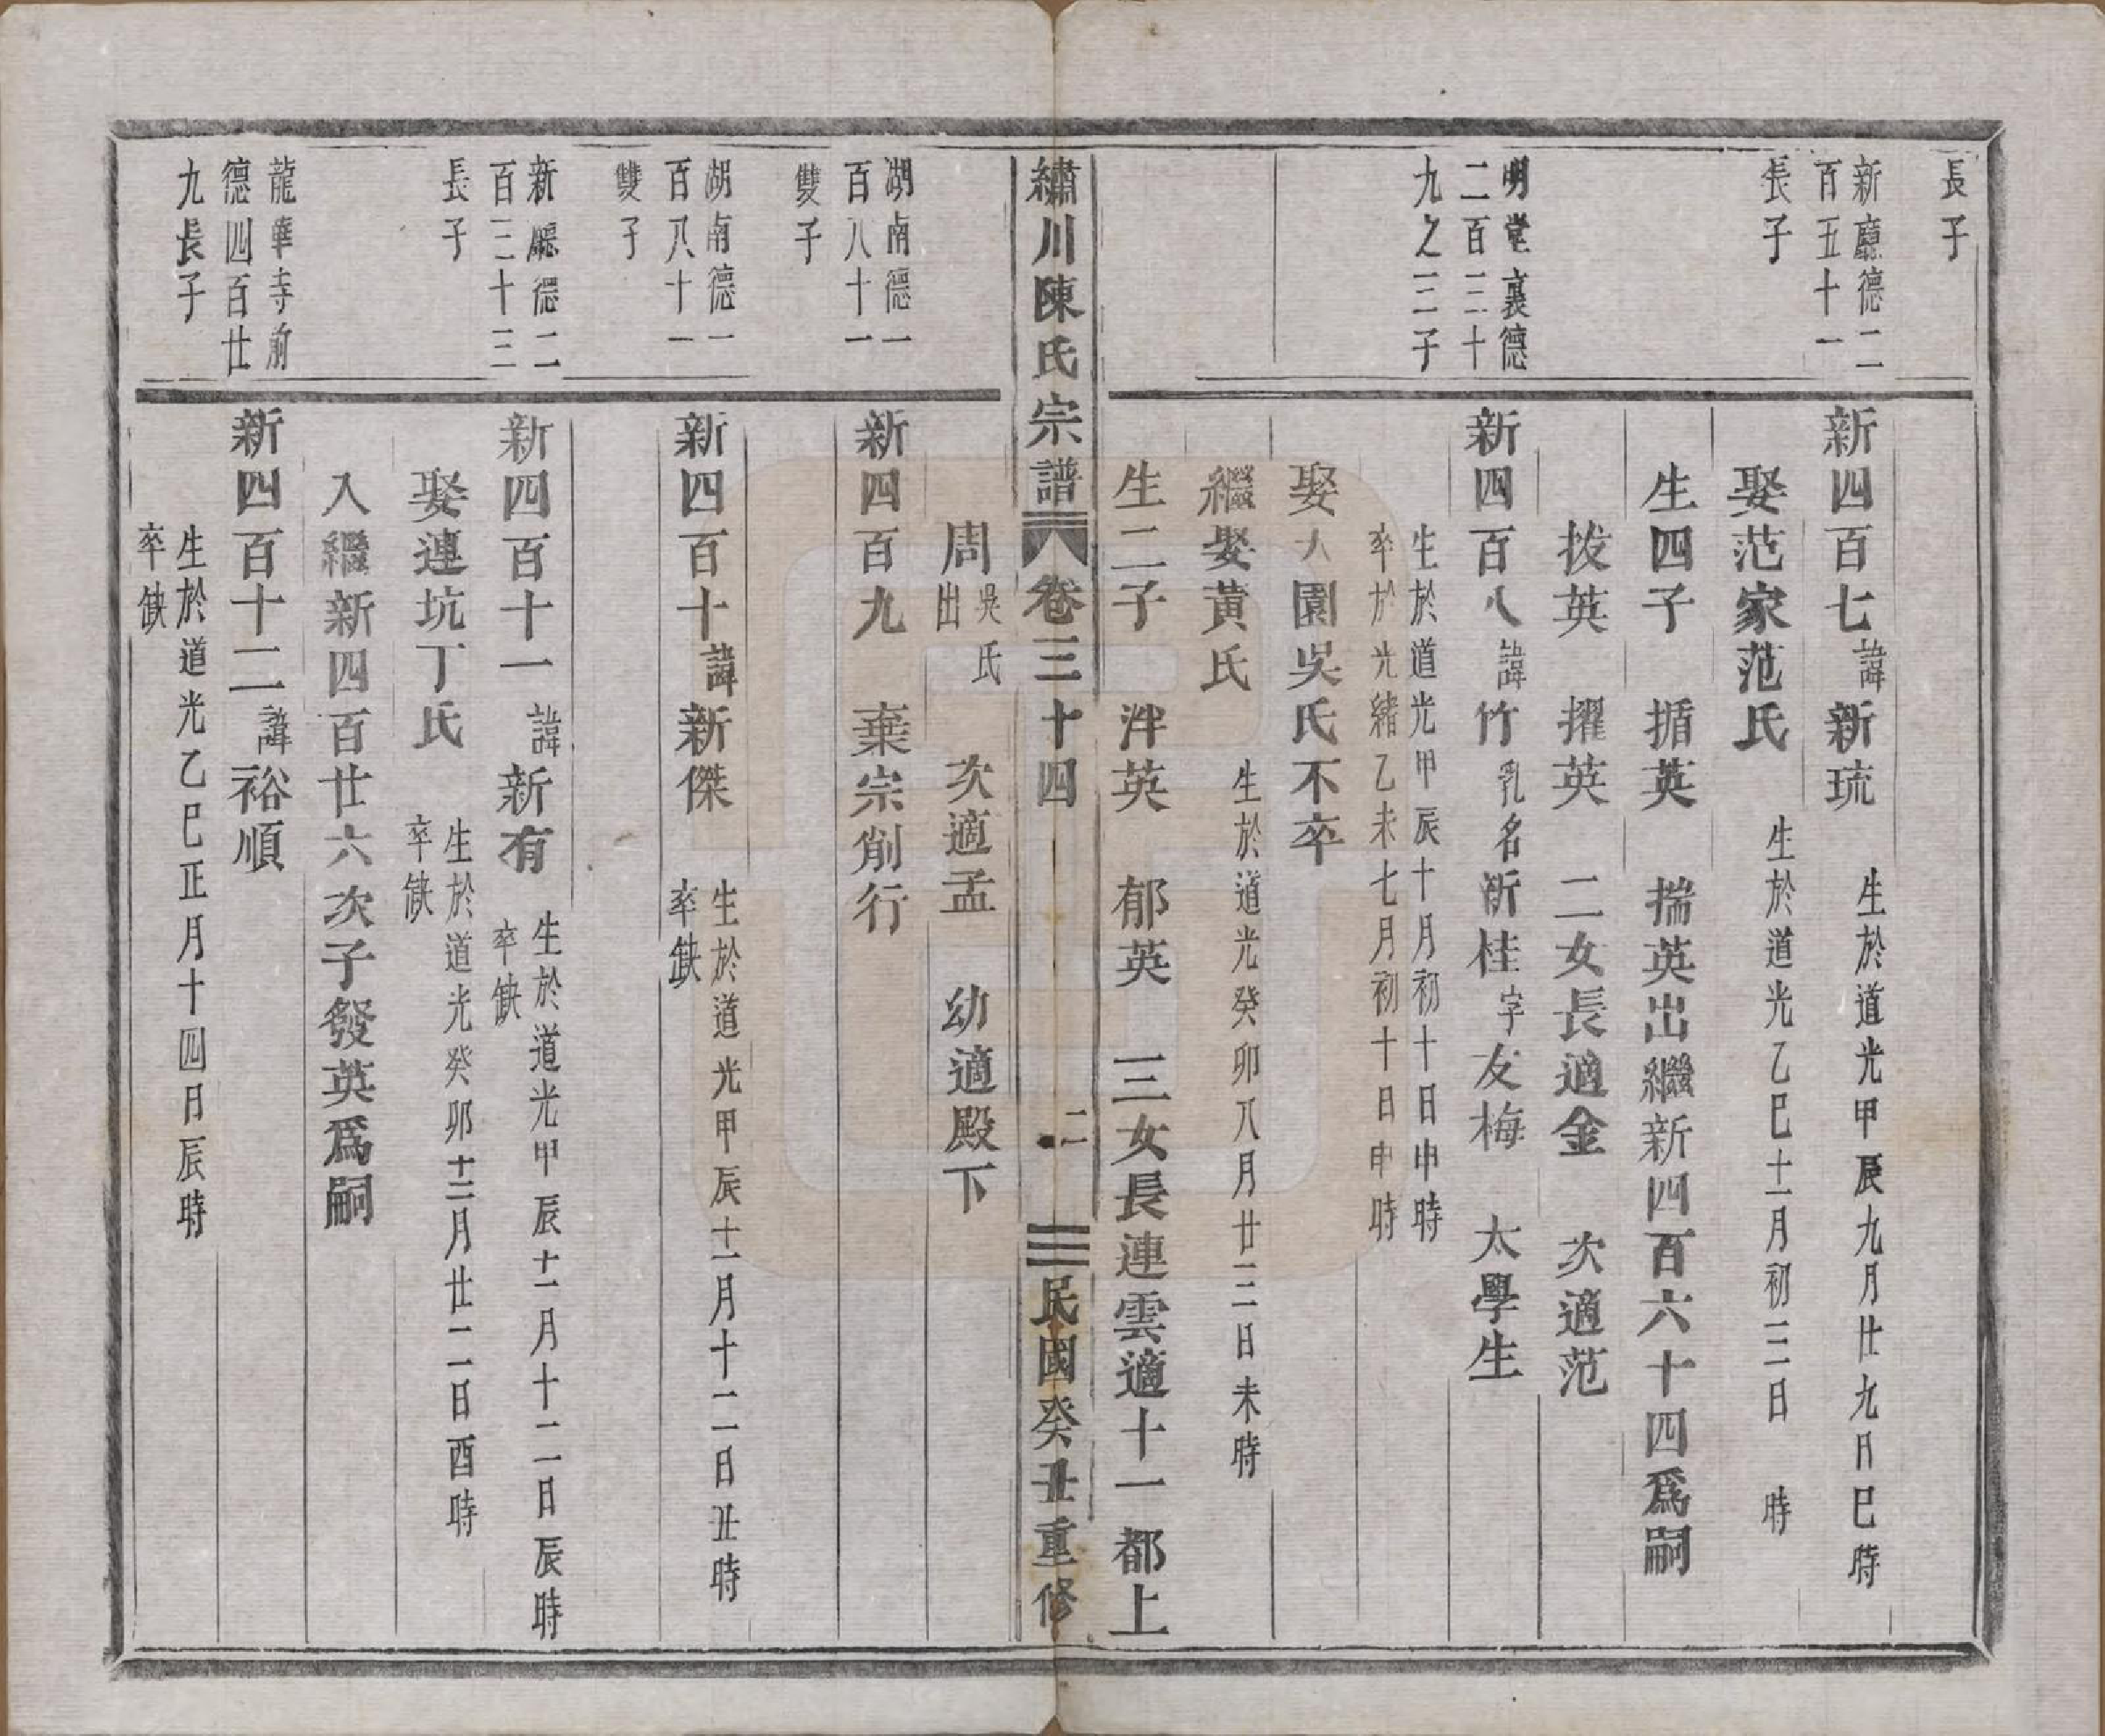 長子
新廳德二
百五十一
長子
新四百七諱新琉
生於道光甲辰九月廿九日巳時
娶范家范氏
生於道光乙巳十一月初三日 時
生四子 揗英 揣英出繼新四百六十四爲嗣
拔英 擢英 二女長適金 次適范
明堂裏德
二百三十
九之三子
新四百八諱竹乳名新桂字友梅 太學生
生於道光甲辰十月初十日申時
卒於光緒乙未七月初十日申時
娶大園吳氏不卒
繼娶黃氏
生於道光癸卯八月廿三日未時
生二子 泮英 郁英 三女長連雲適十一都上
繡川陳氏宗譜 卷三十四 二 民國癸丑重修
周吳氏出 次適孟 幼適殿下
湖南德一
百八十一
雙子
新四百九 棄宗削行
湖南德一
百八十一
雙子
新四百十諱新傑
生於道光甲辰十一月十二日丑時
卒缺
新廳德二
百三十三
長子
新四百十一諱新有
生於道光甲辰十一月十二日辰時
卒缺
娶連坑丁氏
生於道光癸卯十二月廿二日酉時
卒缺
入繼新四百廿六次子發英爲嗣
龍華寺前
德四百廿
九長子
新四百十二諱裕順
生於道光乙巳正月十四日辰時
卒缺